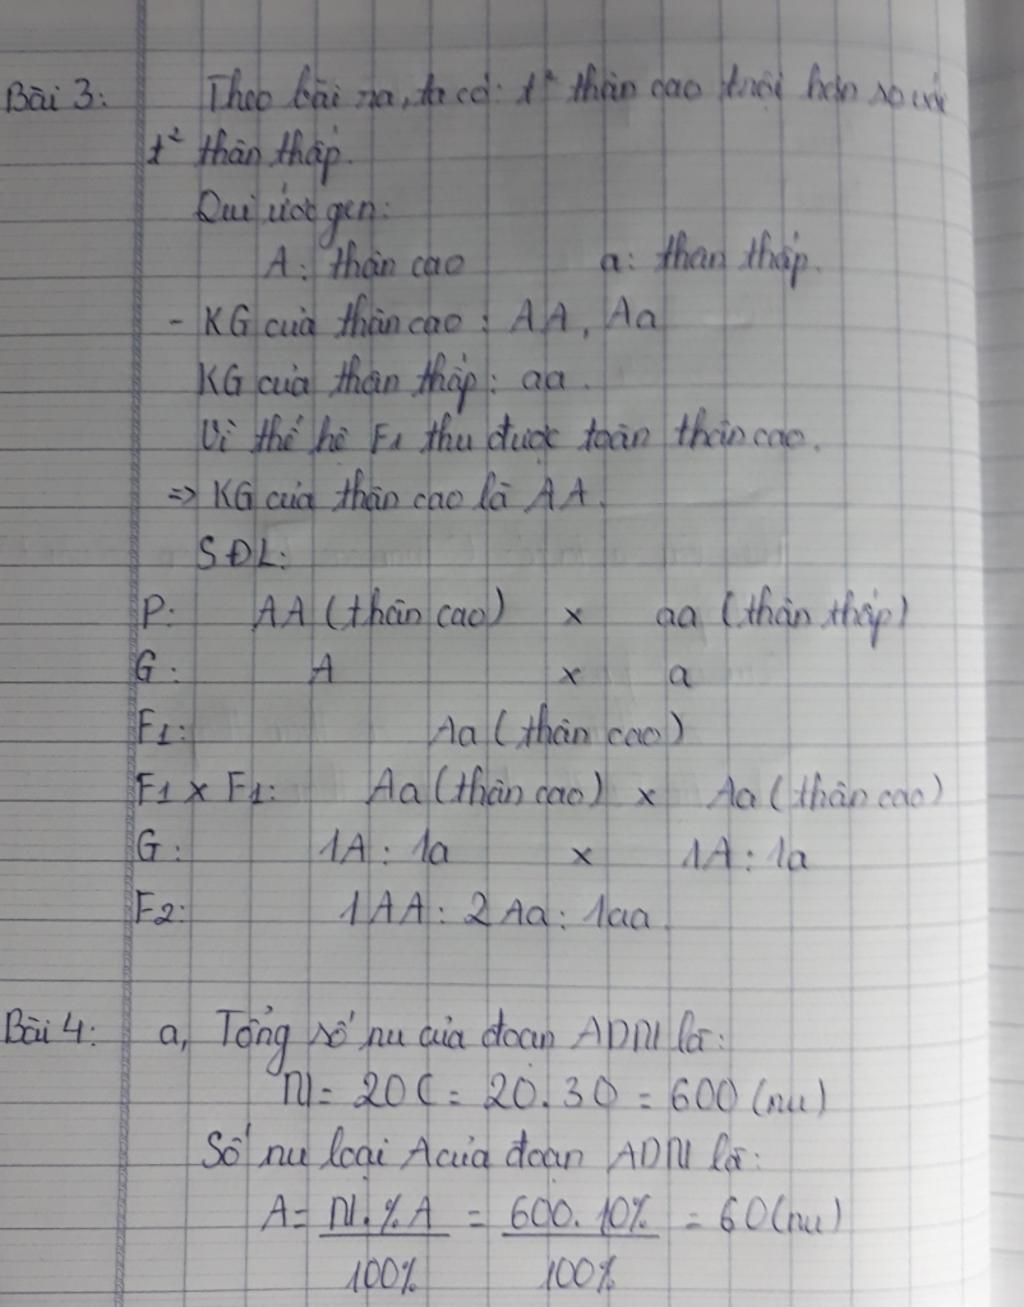 Bài 3: Theo bài ra, ta có: t² thân cao trội hơn so với
t² thân thấp.
Qui ước gen:
A: thân cao a: thân thấp.
- KG của thân cao: AA, Aa
KG của thân thấp: aa.
Vì thế hệ F1 thu được toàn thân cao.
=> KG của thân cao là AA.
SĐL:
P: AA (thân cao) x aa (thân thấp)
G: A x a
F1: Aa (thân cao)
F1 x F1: Aa (thân cao) x Aa (thân cao)
G: 1A : 1a x 1A : 1a
F2: 1AA : 2Aa : 1aa.
Bài 4: a, Tổng số nu của đoạn ADN là:
N = 20C = 20.30 = 600 (nu)
Số nu loại A của đoạn ADN là:
A = N.%A = 600.10% = 60 (nu)
100% 100%